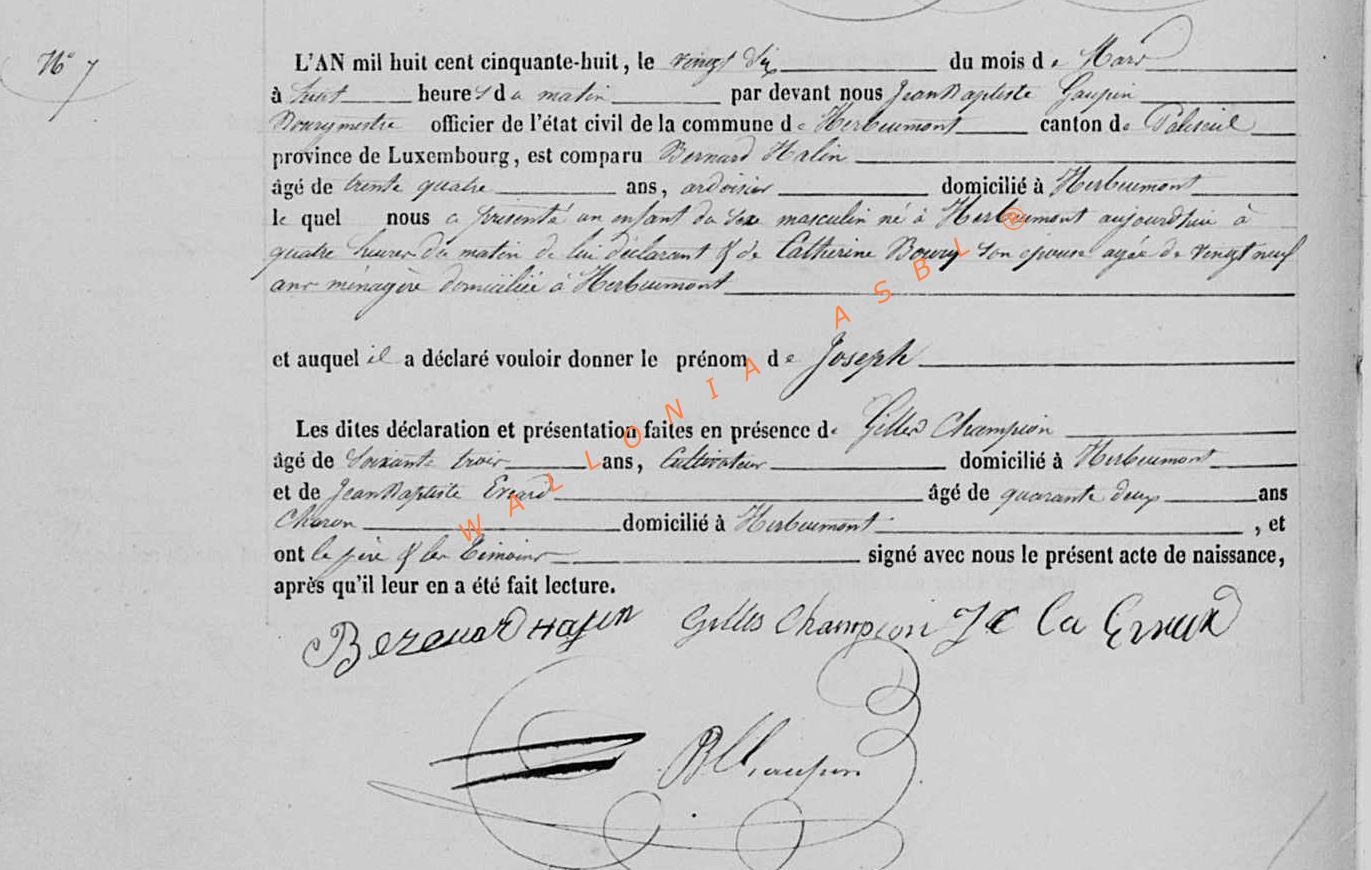 N° 7
L'AN mil huit cent cinquante-huit, le vingt six du mois de Mars
à huit heures du matin par devant nous Jean Baptiste Gaupin
Bourgmestre officier de l'état civil de la commune de Herbeumont canton de Paliseul
province de Luxembourg, est comparu Bernard Halin
âgé de trente quatre ans, ardoisier domicilié à Herbeumont
le quel nous a présenté un enfant du sexe masculin né à Herbeumont aujourd'hui à
quatre heures du matin de lui déclarant & de Catherine Boury son épouse agée de vingt neuf
ans ménagère domiciliée à Herbeumont
et auquel il a déclaré vouloir donner le prénom de Joseph
Les dites déclaration et présentation faites en présence de Gilles Champion
âgé de soixante trois ans, Cultivateur domicilié à Herbeumont
et de Jean Baptiste Evrard âgé de quarante deux ans
Charon domicilié à Herbeumont , et
ont le père & les témoins signé avec nous le présent acte de naissance,
après qu'il leur en a été fait lecture.
Gilles Champion
WALLONIA ASBL ®